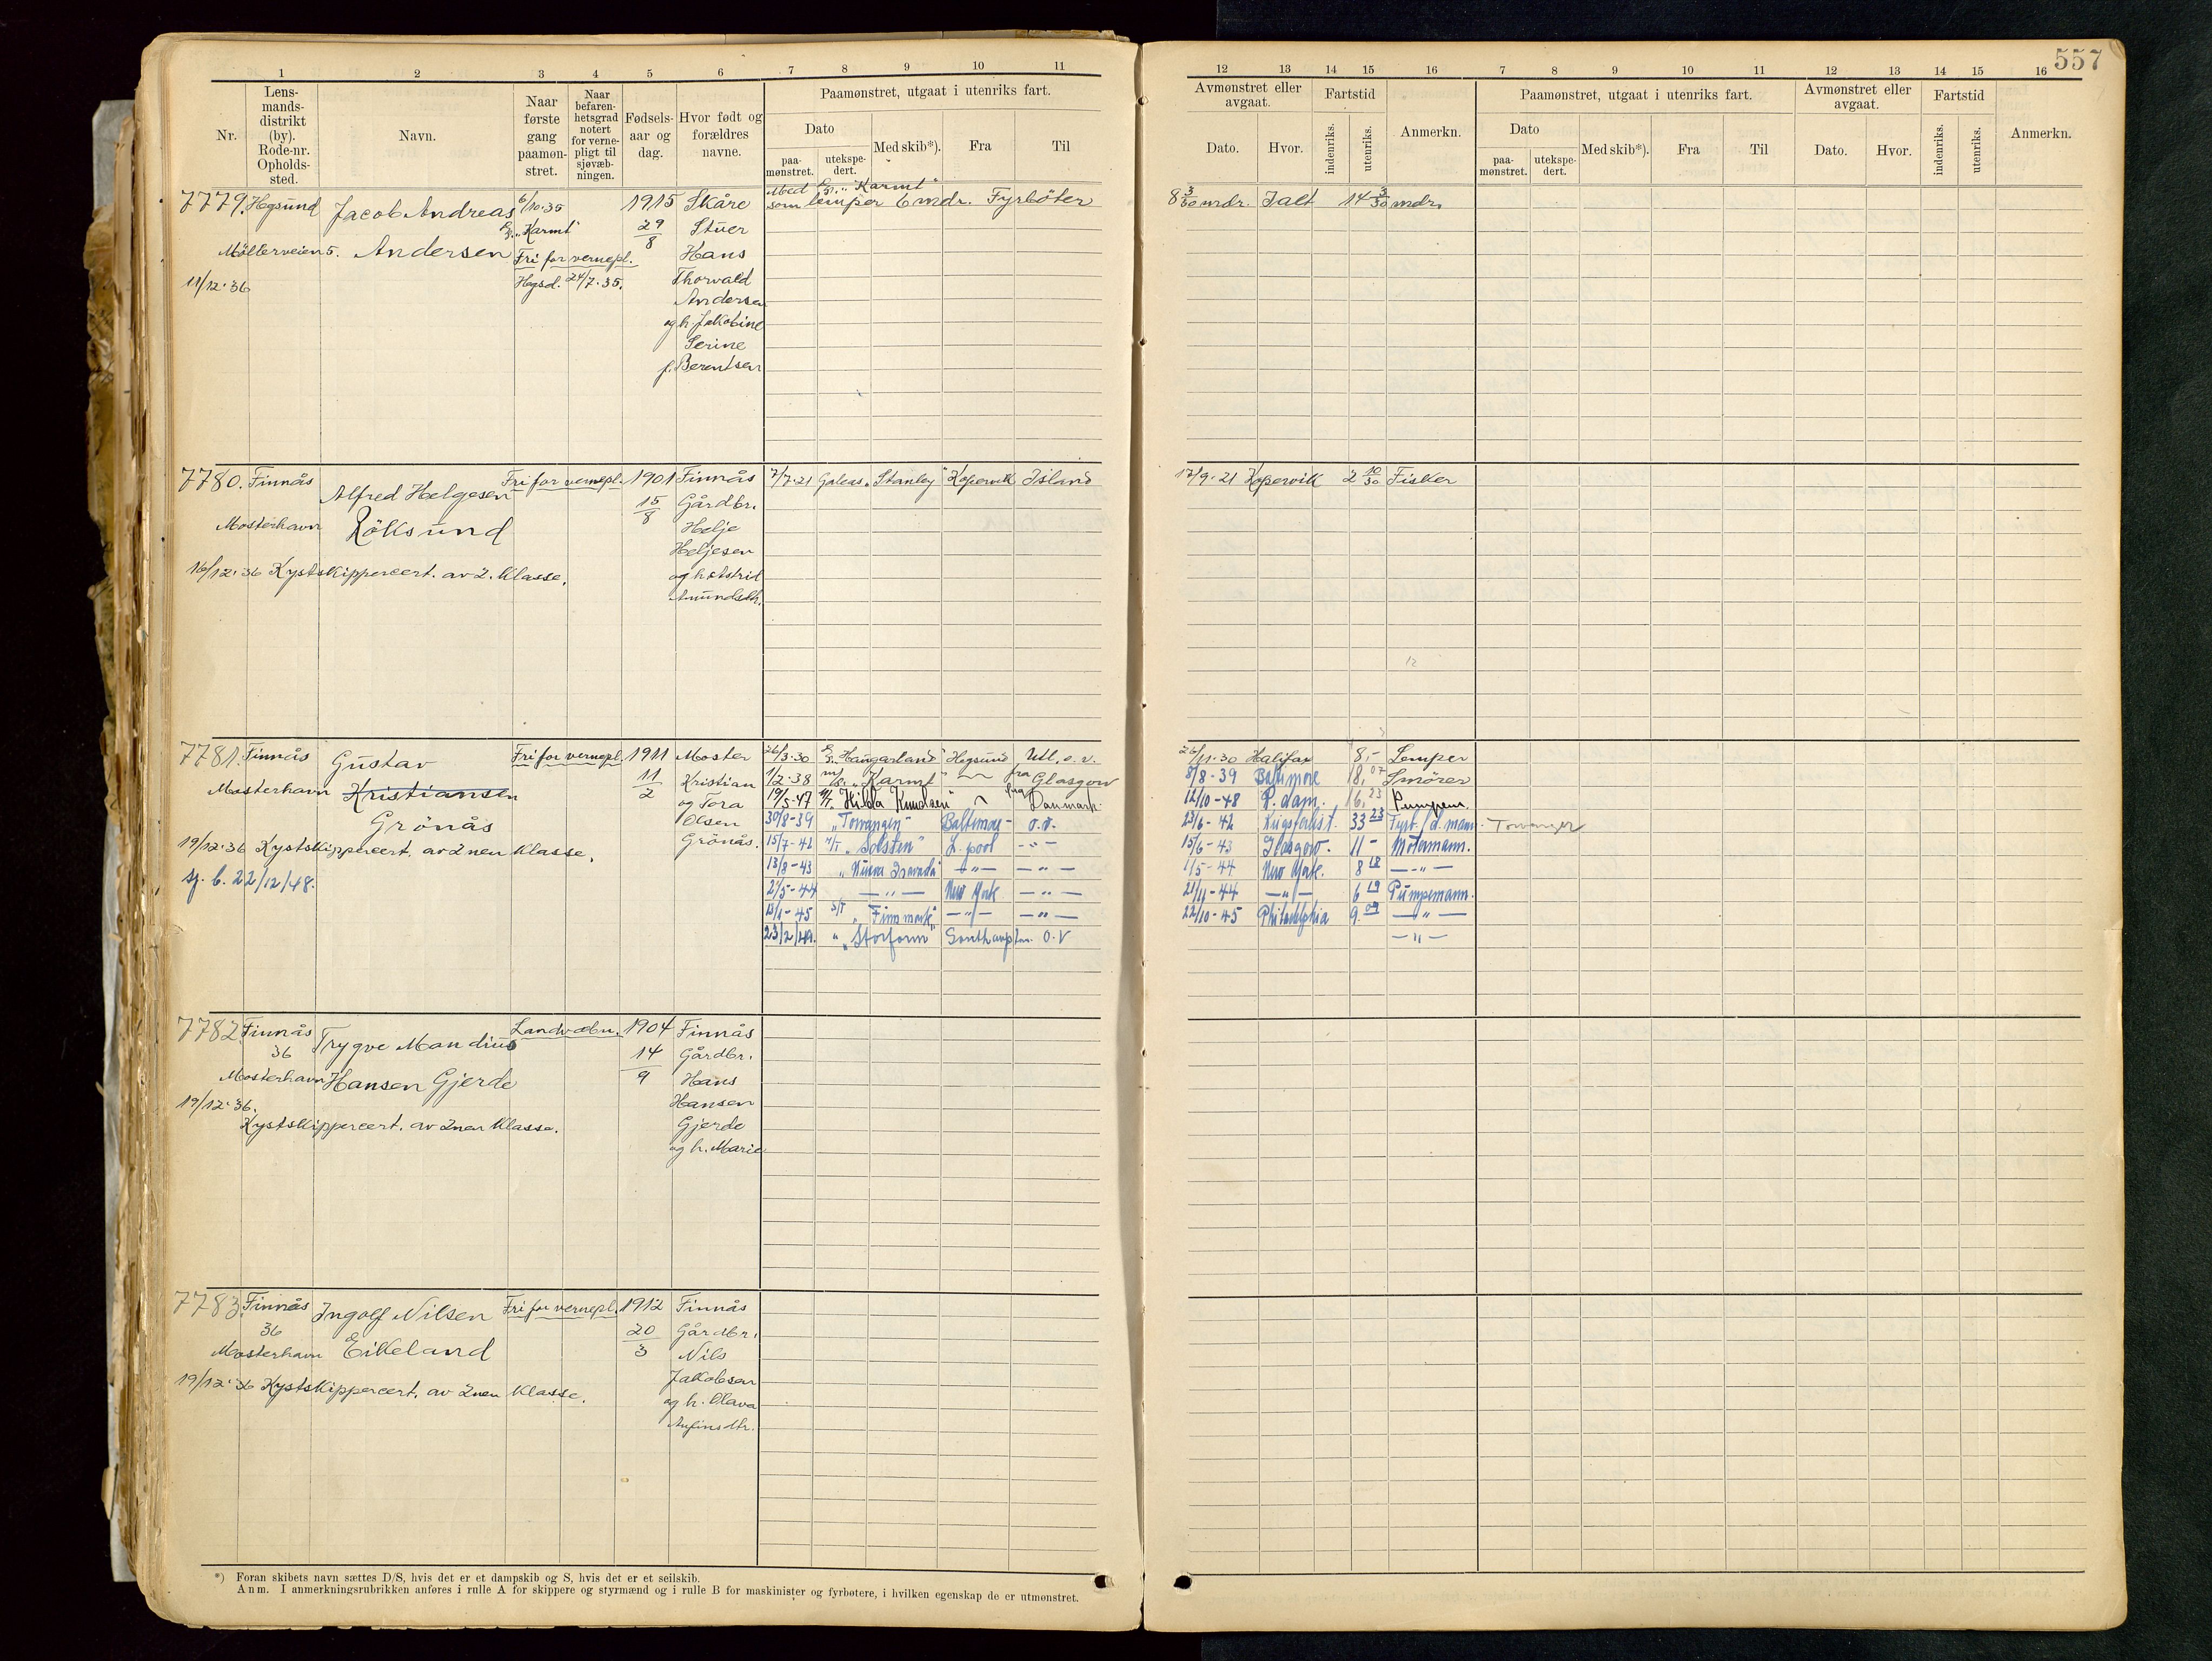 557
1 2 3 4 5 6 7 8 9 10 11
12 13 14 15 16 7 8 9 10 11 12 13 14 15 16
Nr.
Lens-
mands-
distrikt
(by).
Rode-nr.
Opholds-
sted.
Navn.
Naar
første
gang
paamøn-
stret.
Naar
befaren-
hetsgrad
notert
for verne-
pligt til
sjøvæb-
ningen.
Fødsels-
aar og
dag.
Hvor født og
forældres
navne.
Paamønstret, utgaat i utenriks fart.
Dato
paa-
mønstret.
utekspe-
dert.
Med skib*).
Fra
Til
Avmønstret eller
avgaat.
Dato.
Hvor.
Fartstid
indenriks.
utenriks.
Anmerkn.
Paamønstret, utgaat i utenriks fart.
Dato
paa-
mønstret.
utekspe-
dert.
Med skib*).
Fra
Til
Avmønstret eller
avgaat.
Dato.
Hvor.
Fartstid
indenriks.
utenriks.
Anmerkn.
7779. Hgsund Jacob Andreas 6/10.35 1915 Skåre
Med D/S. "Karmt"
som lemper 6 mdr. Fyrböter 8 3/30 mdr. Ialt 14 3/30 mdr.
D/S. "Karmt" 29/8 Stuer
Möllerveien 5. Andersen Fri for vernepl. Hans
11/12.36 Hgsd. 24/7.35. Thorvald
Andersen
og h. Jakobine
Serine
f. Berentsen
7780. Finnås Alfred Helgesen Fri for vernepl. 1901 Finnås 7/7.21 Galeas "Stanley" Kopervik Island 17/9.21 Kopervik 2 10/30 Fisker
15/8 Gårdbr.
Mosterhavn Röksund Helje
Heljesen
16/12.36 Kystskippercert. av 2. Klasse.
Amundsdtr.
7781. Finnås Gustav Fri for vernepl. 1911 Moster 26/3.30 D/S. "Haugarland" Hgsund Utl. o. v. 26/11.30 Halifax 8,- Lemper
11/2 Kristian 1/2-38 "Karmt" fra Glasgow 8/8-39 Baltimore 18,07 Smörer
Mosterhavn Kristiansen og Tora 19/5-47 M/T. "Hilda Knudsen" fra Danmark. 12/10-48 R.dam. 16,23 Pumpem.
Grönås Olsen 30/8-39 "Torvanger" Baltimore- o.v. 23/6-42 33 23 Torvanger
19/12.36 Kystskippercert. av 2nen Klasse. Grönås. 15/7-42 M/T "Solsten" L.pool -"- 15/6-43 Glasgow. 11- Motormann.
sj. b. 22/12/48. 13/8-43 -"- -"- 1/5-44 New York. 8 18 -"-
2/5-44 -"- New York -"- 21/11-44 -"- 6 19 Pumpemann.
13/1-45 S/T "Finnmark" -"- -"- 22/10-45 Philadelphia 9.09 -"-
23/2/49. " "Storform" Southampton. O.V -"-
7782 Finnås Trygve Mandius Landvæbn. 1904 Finnås
36 14/9 Gårdbr.
Mosterhavn Hansen Gjerde Hans
19/12.36. Hansen
Kystskippercert. av 2nen Klasse. Gjerde
og h. Marie
7783. Finnås Ingolf Nilsen Fri for vernepl. 1912 Finnås
36 20/3 Gårdbr.
Mosterhavn Eikeland Nils
19/12.36 Kystskippercert. av 2nen Klasse. Jakobsen
og h. Olava
Anfinsdtr.
*) Foran skibets navn sættes D/S, hvis det er et dampskib og S, hvis det er et seilskib.
Anm. I anmerkningsrubrikken anføres i rulle A for skippere og styrmænd og i rulle B for maskinister og fyrbøtere, i hvilken egenskap de er utmønstret.